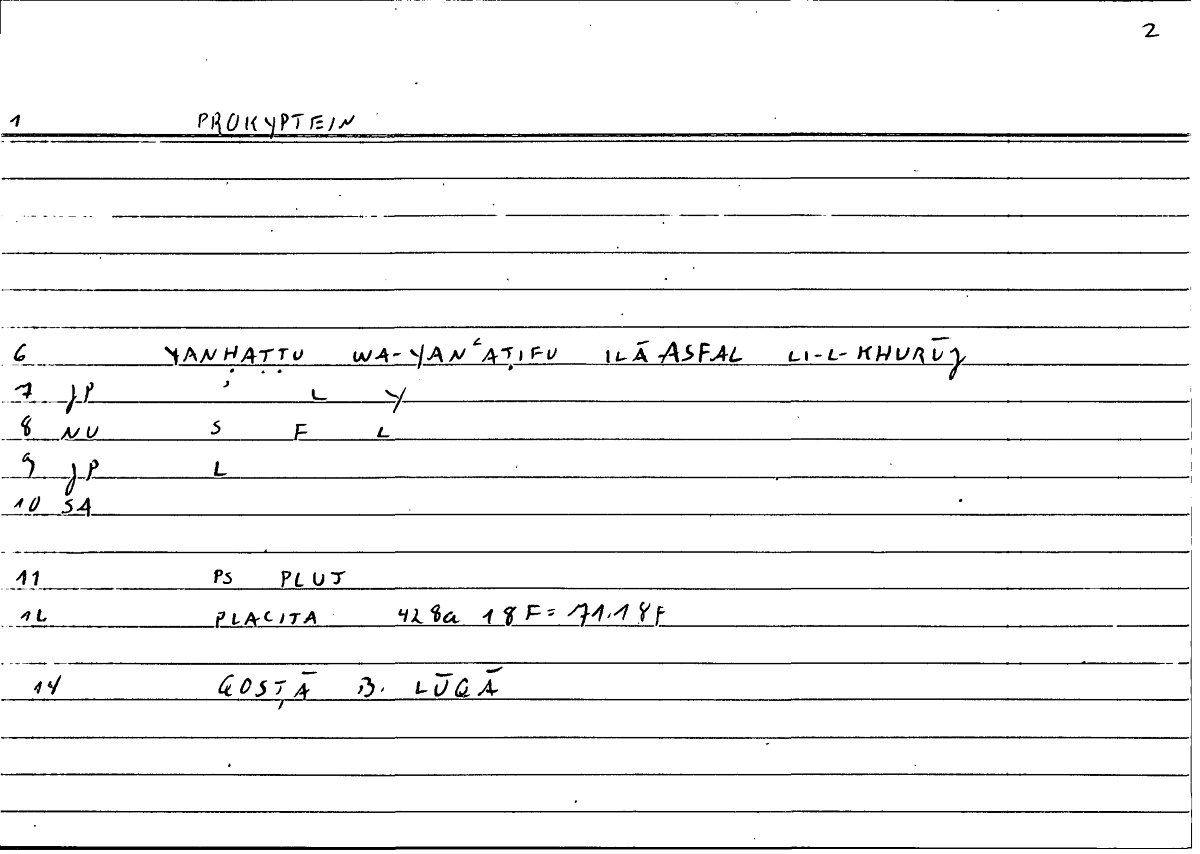 2
1 PROKYPTEIN
6 YANḤAṬṬU WA-YANʿAṬIFU ILĀ ASFAL LI-L-KHURŪJ
7 JP ʾ L Y
8 NU S F L
9 JP L
10 SA
11 PS PLUT
12 PLACITA 428a 18F=71.18F
14 QOSṬĀ B. LŪQĀ